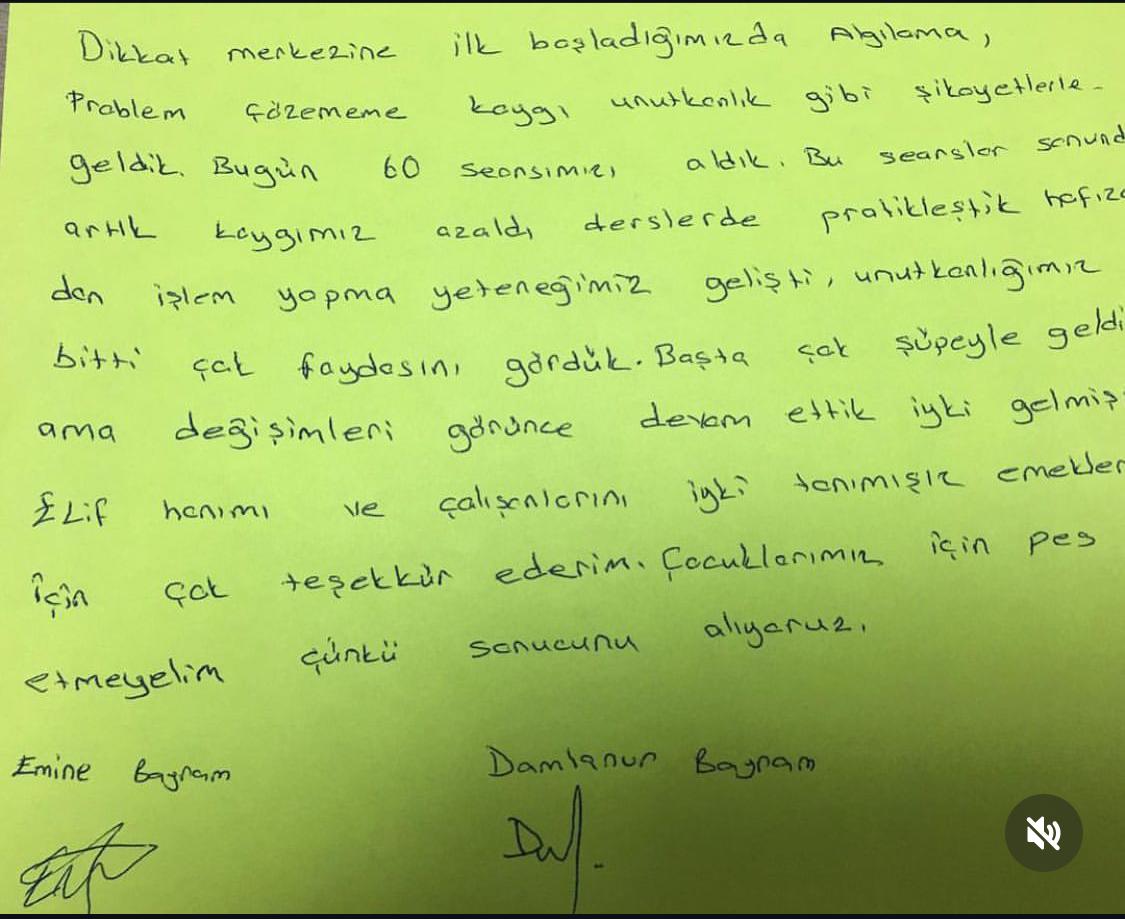 Dikkat merkezine ilk başladığımızda Algılama,
Problem çözememe kaygı unutkanlık gibi şikayetlerle
geldik. Bugün 60 seansımızı aldık. Bu seanslar sonund
artık kaygımız azaldı derslerde pratikleştik hafıza
dan işlem yapma yeteneğimiz gelişti, unutkanlığımız
bitti çok faydasını gördük. Başta çok şüpeyle geldi
ama değişimleri görünce devam ettik iyki gelmiş
Elif hanımı ve çalışanlarını iyki tanımışız emekler
için çok teşekkür ederim. Çocuklarımız için pes
etmeyelim çünkü sonucunu alıyoruz.
Emine Bayram Damlanur Bayram